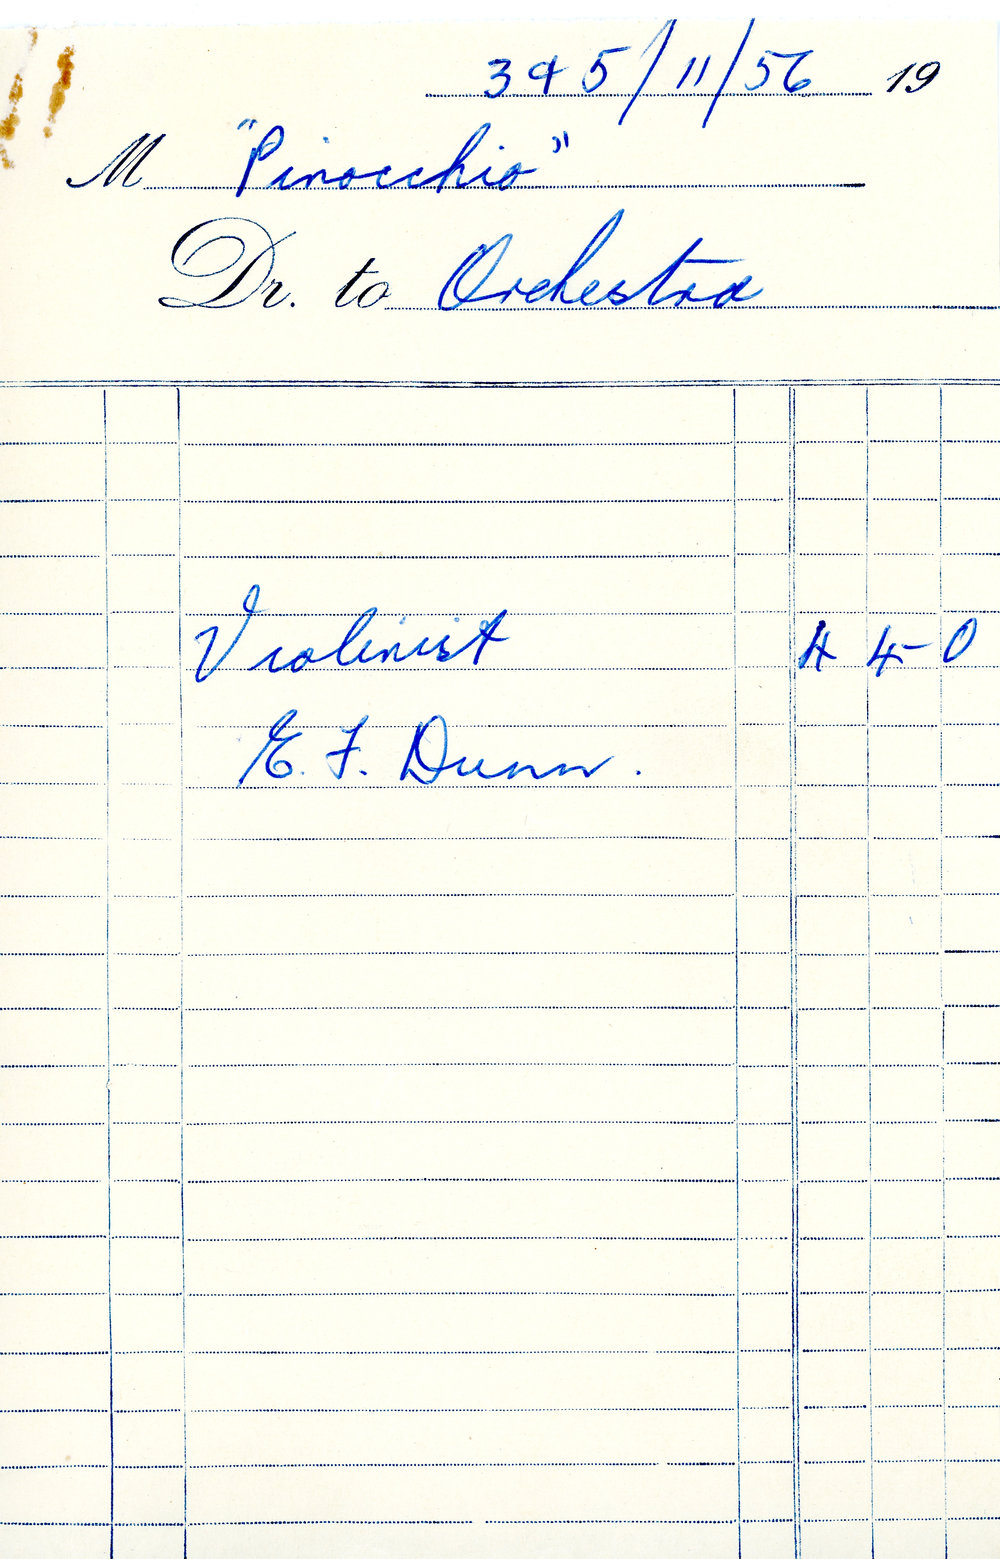 3 & 5/11/56 19
M "Pinocchio"
Dr. to Orchestra
Violinist 4 4 - 0
E. F. Dunn.